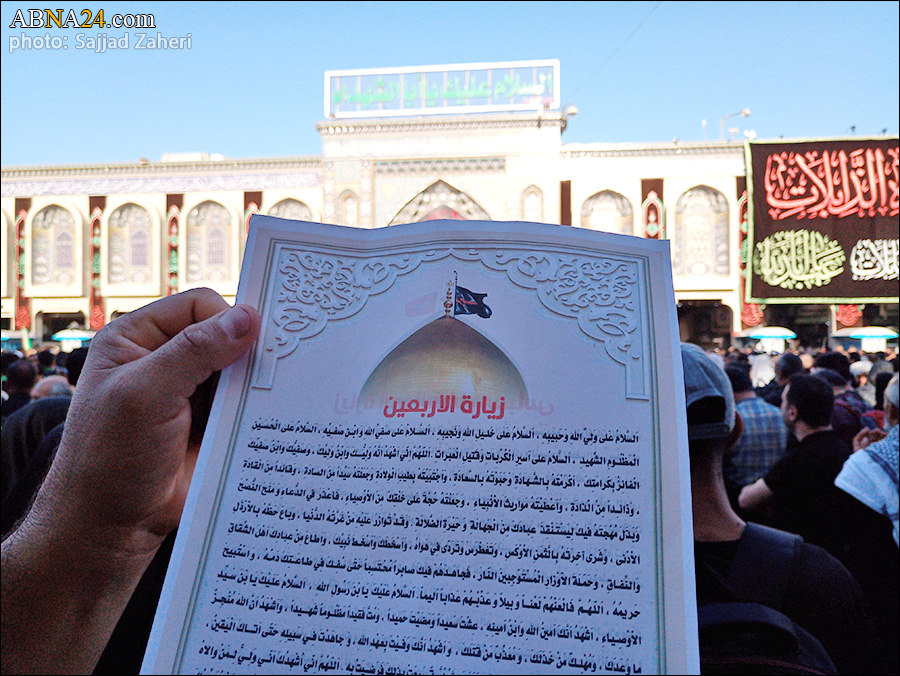 ABNA24.com
photo: Sajjad Zaheri
السلام عليك يا ابا الشهداء
الزلزلات
زيارة الاربعين
اَلسَّلامُ عَلى وَلِيِّ اللهِ وَحَبيبِهِ ، اَلسَّلامُ عَلى خَليلِ اللهِ وَنَجيبِهِ ، اَلسَّلامُ عَلى صَفِيِّ اللهِ وَابْنِ صَفِيِّهِ ، اَلسَّلامُ عَلى الْحُسَيْنِ
الْمَظْلُومِ الشَّهيدِ ، اَلسَّلامُ عَلى اَسيرِ الْكُرُباتِ وَقَتيلِ الْعَبَراتِ. اَللّهُمَّ اِنّي اَشْهَدُ اَنَّهُ وَلِيُّكَ وَابْنُ وَلِيِّكَ ، وَصَفِيُّكَ وَابْنُ صَفِيِّكَ
الْفائِزُ بِكَرامَتِكَ ، اَكْرَمْتَهُ بِالشَّهادَةِ وَحَبَوْتَهُ بِالسَّعادَةِ ، وَاجْتَبَيْتَهُ بِطيبِ الْوِلادَةِ وَجَعَلْتَهُ سَيِّداً مِنَ السادَةِ ، وَقائِداً مِنَ الْقادَةِ
، وَذائِداً مِنَ الْذادَةِ ، وَاَعْطَيْتَهُ مَواريثَ الاَْنْبِياءِ ، وَجَعَلْتَهُ حُجَّةً عَلى خَلْقِكَ مِنَ الاَْوْصِياءِ ، فَاَعْذَرَ فِي الدُّعاءِ وَمَنَحَ النُّصْحَ
وَبَذَلَ مُهْجَتَهُ فيكَ لِيَسْتَنْقِذَ عِبادَكَ مِنَ الْجَهالَةِ وَحَيْرَةِ الضَّلالَةِ . وَقَدْ تَوازَرَ عَلَيْهِ مَنْ غَرَّتْهُ الدُّنْيا ، وَباعَ حَظَّهُ بِالاَْرْذَلِ
الاَْدْنى ، وَشَرى آخِرَتَهُ بِالثَّمَنِ الاَْوْكَسِ ، وَتَغَطْرَسَ وَتَرَدّى فِي هَواهُ ، وَاَسْخَطَكَ وَاَسْخَطَ نَبِيَّكَ ، وَاَطاعَ مِنْ عِبادِكَ اَهْلَ الشِّقاقِ
وَالنِّفاقِ ، وَحَمَلَةَ الاَْوْزارِ الْمُسْتَوْجِبينَ النّارَ ، فَجاهَدَهُمْ فيكَ صابِراً مُحْتَسِباً حَتّى سُفِكَ فِي طاعَتِكَ دَمُهُ ، وَاسْتُبيحَ
حَريمُهُ ، اَللّهُمَّ فَالْعَنْهُمْ لَعْناً وَبيلاً وَعَذِّبْهُمْ عَذاباً اَليماً. اَلسَّلامُ عَلَيْكَ يَا بْنَ رَسُولِ اللهِ ، اَلسَّلامُ عَلَيْكَ يَا بْنَ سَيِّدِ
الاَْوْصِياءِ ، اَشْهَدُ اَنَّكَ اَمينُ اللهِ وَابْنُ اَمينِهِ ، عِشْتَ سَعيداً وَمَضَيْتَ حَميداً ، وَمُتَّ فَقيداً مَظْلُوماً شَهيداً ، وَاَشْهَدُ اَنَّ اللهَ مُنْجِزٌ
ما وَعَدَكَ ، وَمُهْلِكٌ مَنْ خَذَلَكَ ، وَمُعَذِّبٌ مَنْ قَتَلَكَ ، وَاَشْهَدُ اَنَّكَ وَفَيْتَ بِعَهْدِ اللهِ ، وَجاهَدْتَ فِي سَبيلِهِ حَتّى اَتاكَ الْيَقينُ ،
اَللّهُمَّ اِنّي اُشْهِدُكَ اَنّي وَلِيٌّ لِمَنْ والاهُ